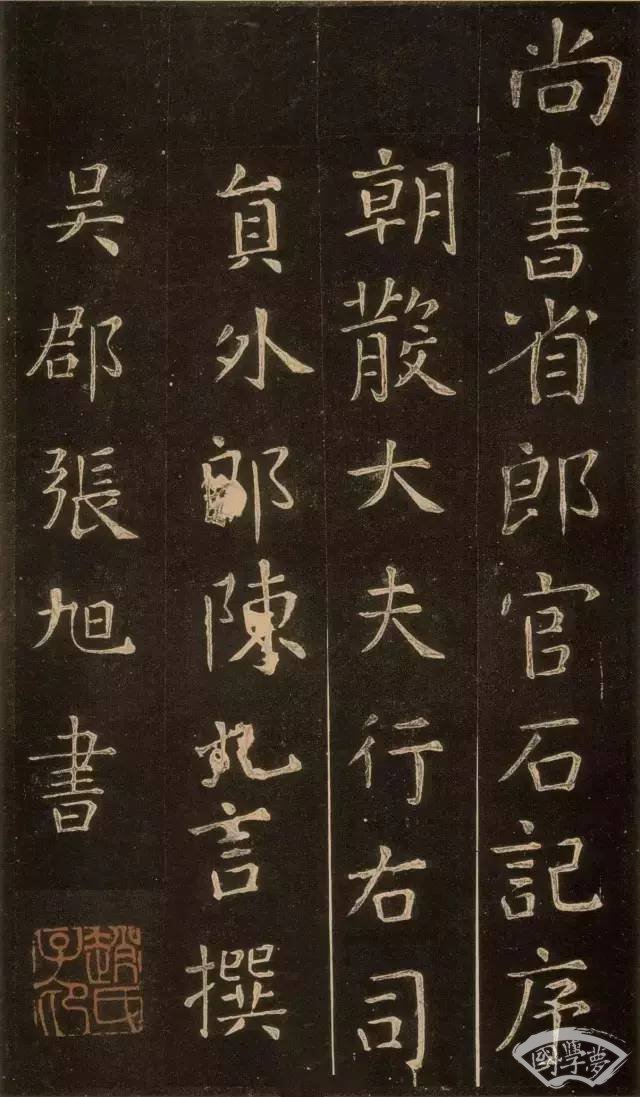 尚書省郎官石記序
朝散大夫行右司
員外郎陳九言撰
吳郡張旭書
趙氏子印
國學夢